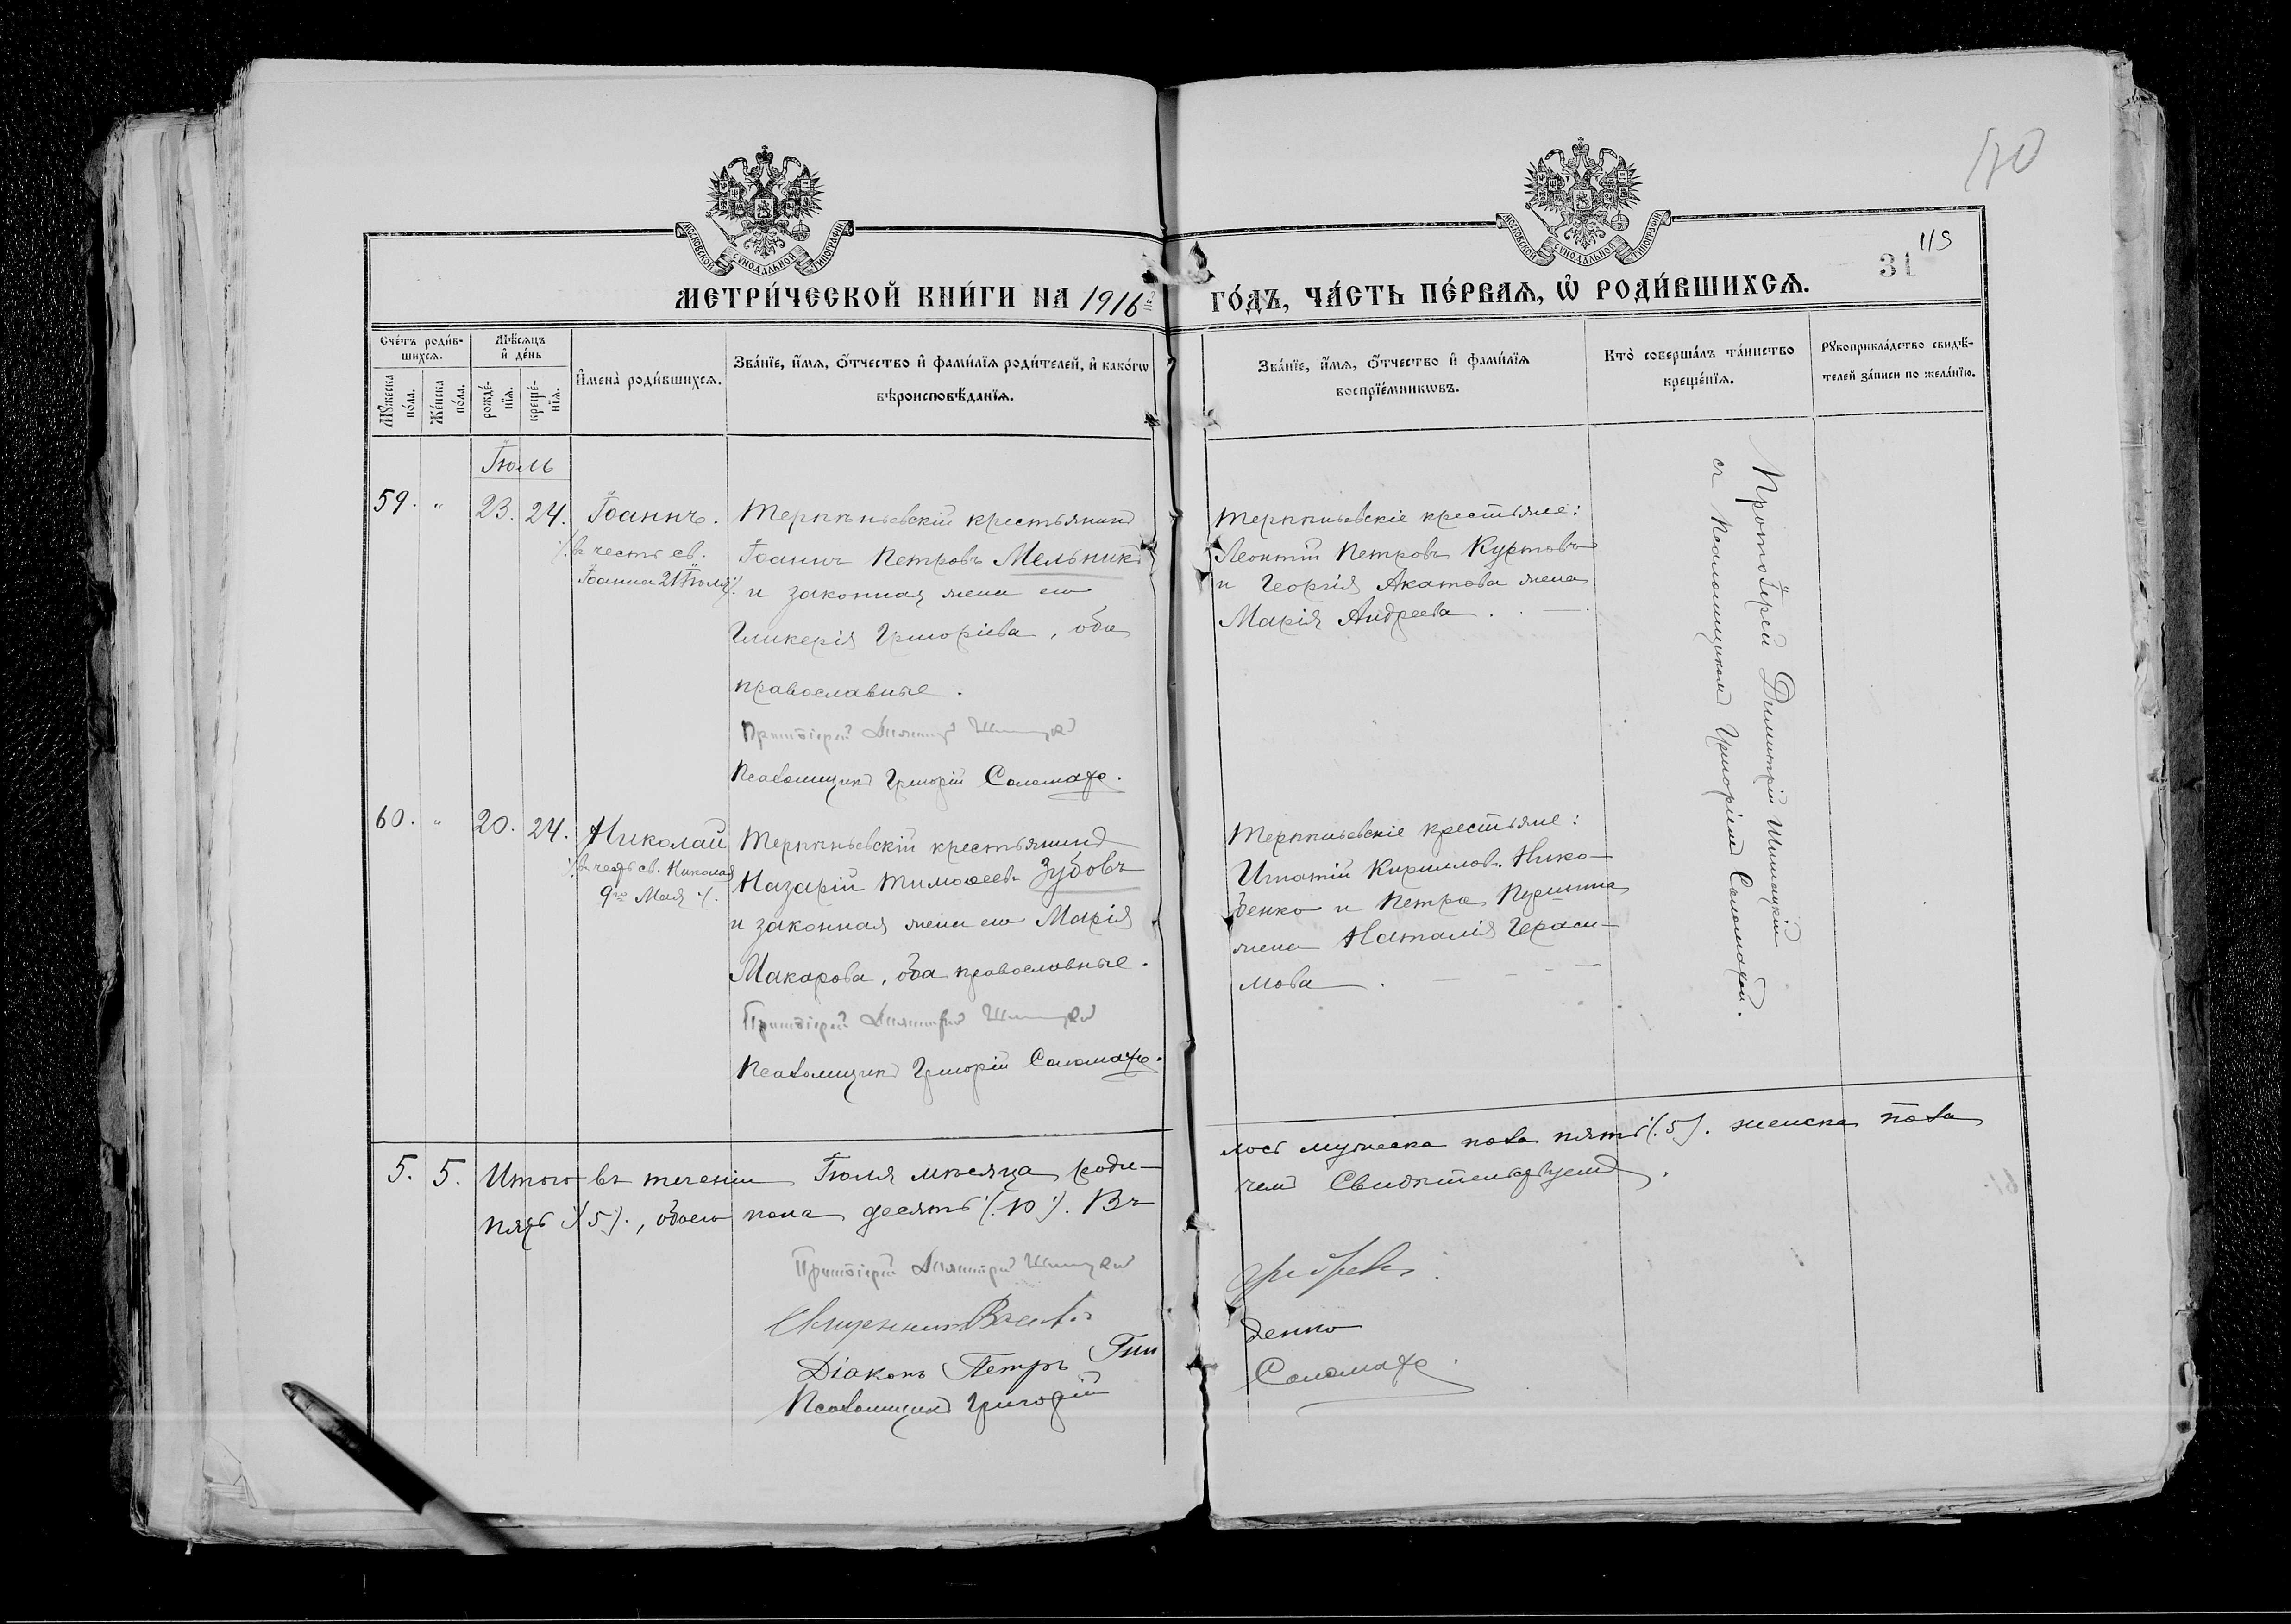 110
МОСКОВСКОЙ СУНОДАЛЬНОЙ ТИПОГРАФІИ
МОСКОВСКОЙ СУНОДАЛЬНОЙ ТИПОГРАФІИ
115
31
МЕТРИ́ЧЕСКОЙ КНИ́ГИ НА 1916й
ГО́ДЪ, ЧА́СТЬ ПЕ́РВАѦ, Ѡ҆ РОДИ́ВШИХСѦ.
Сче́тъ роди́в-
шихсѧ.
Мꙋ́жеска
по́ла.
Же́нска
по́ла.
Мѣ́сѧцъ
и҆ де́нь
рожде́-
нїѧ.
креще́-
нїѧ.
И҆мена̀ роди́вшихсѧ.
Зва́нїе, и҆́мѧ, ѻ҆́тчество и҆ фами́лїѧ роди́телей, и҆ како́гѡ
вѣроисповѣ́данїѧ.
Зва́нїе, и҆́мѧ, ѻ҆́тчество и҆ фами́лїѧ
воспрїе́мникѡвъ.
Кто̀ соверша́лъ та́инство
креще́нїѧ.
Рꙋкоприкла́дство свидѣ́-
телей за́писи по жела́нїю.
Іюль
59. " 23. 24. Іоаннъ.
въ честь св.
Іоанна 21 Іюля
крестьянинъ
Іоаннъ Петровъ Мельникъ
и законная жена его
Гликерія Григоріева, оба
православные.
Протоіерей Димитрій
Псаломщикъ Григорій Соломаха.
крестьяне:
Леонтій Петровъ Куртовъ
и Георгія Акатова жена
Марія Андреева.
Протоіерей Димитрій
съ Псаломщикомъ Григоріемъ Соломахой.
60. " 20. 24. Николай
въ честь св. Николая
9го Мая
крестьянинъ
Назарій Тимоѳеевъ Зубовъ
и законная жена его Марія
Макарова, оба православные.
Протоіерей Димитрій
Псаломщикъ Григорій Соломаха.
крестьяне:
Игнатій Кирилловъ Нико-
денко и Петра
жена Наталія Гераси-
мова.
5. 5. Итого въ теченіи Іюля мѣсяца роди-
лось мужеска пола пять (5). женска пола
пять (5)., обоего пола десять (10). Въ
чемъ Свидѣтельствуемъ.
Протоіерей Димитрій
Священникъ
Діаконъ Петръ
денко
Псаломщикъ Григорій
Соломаха.